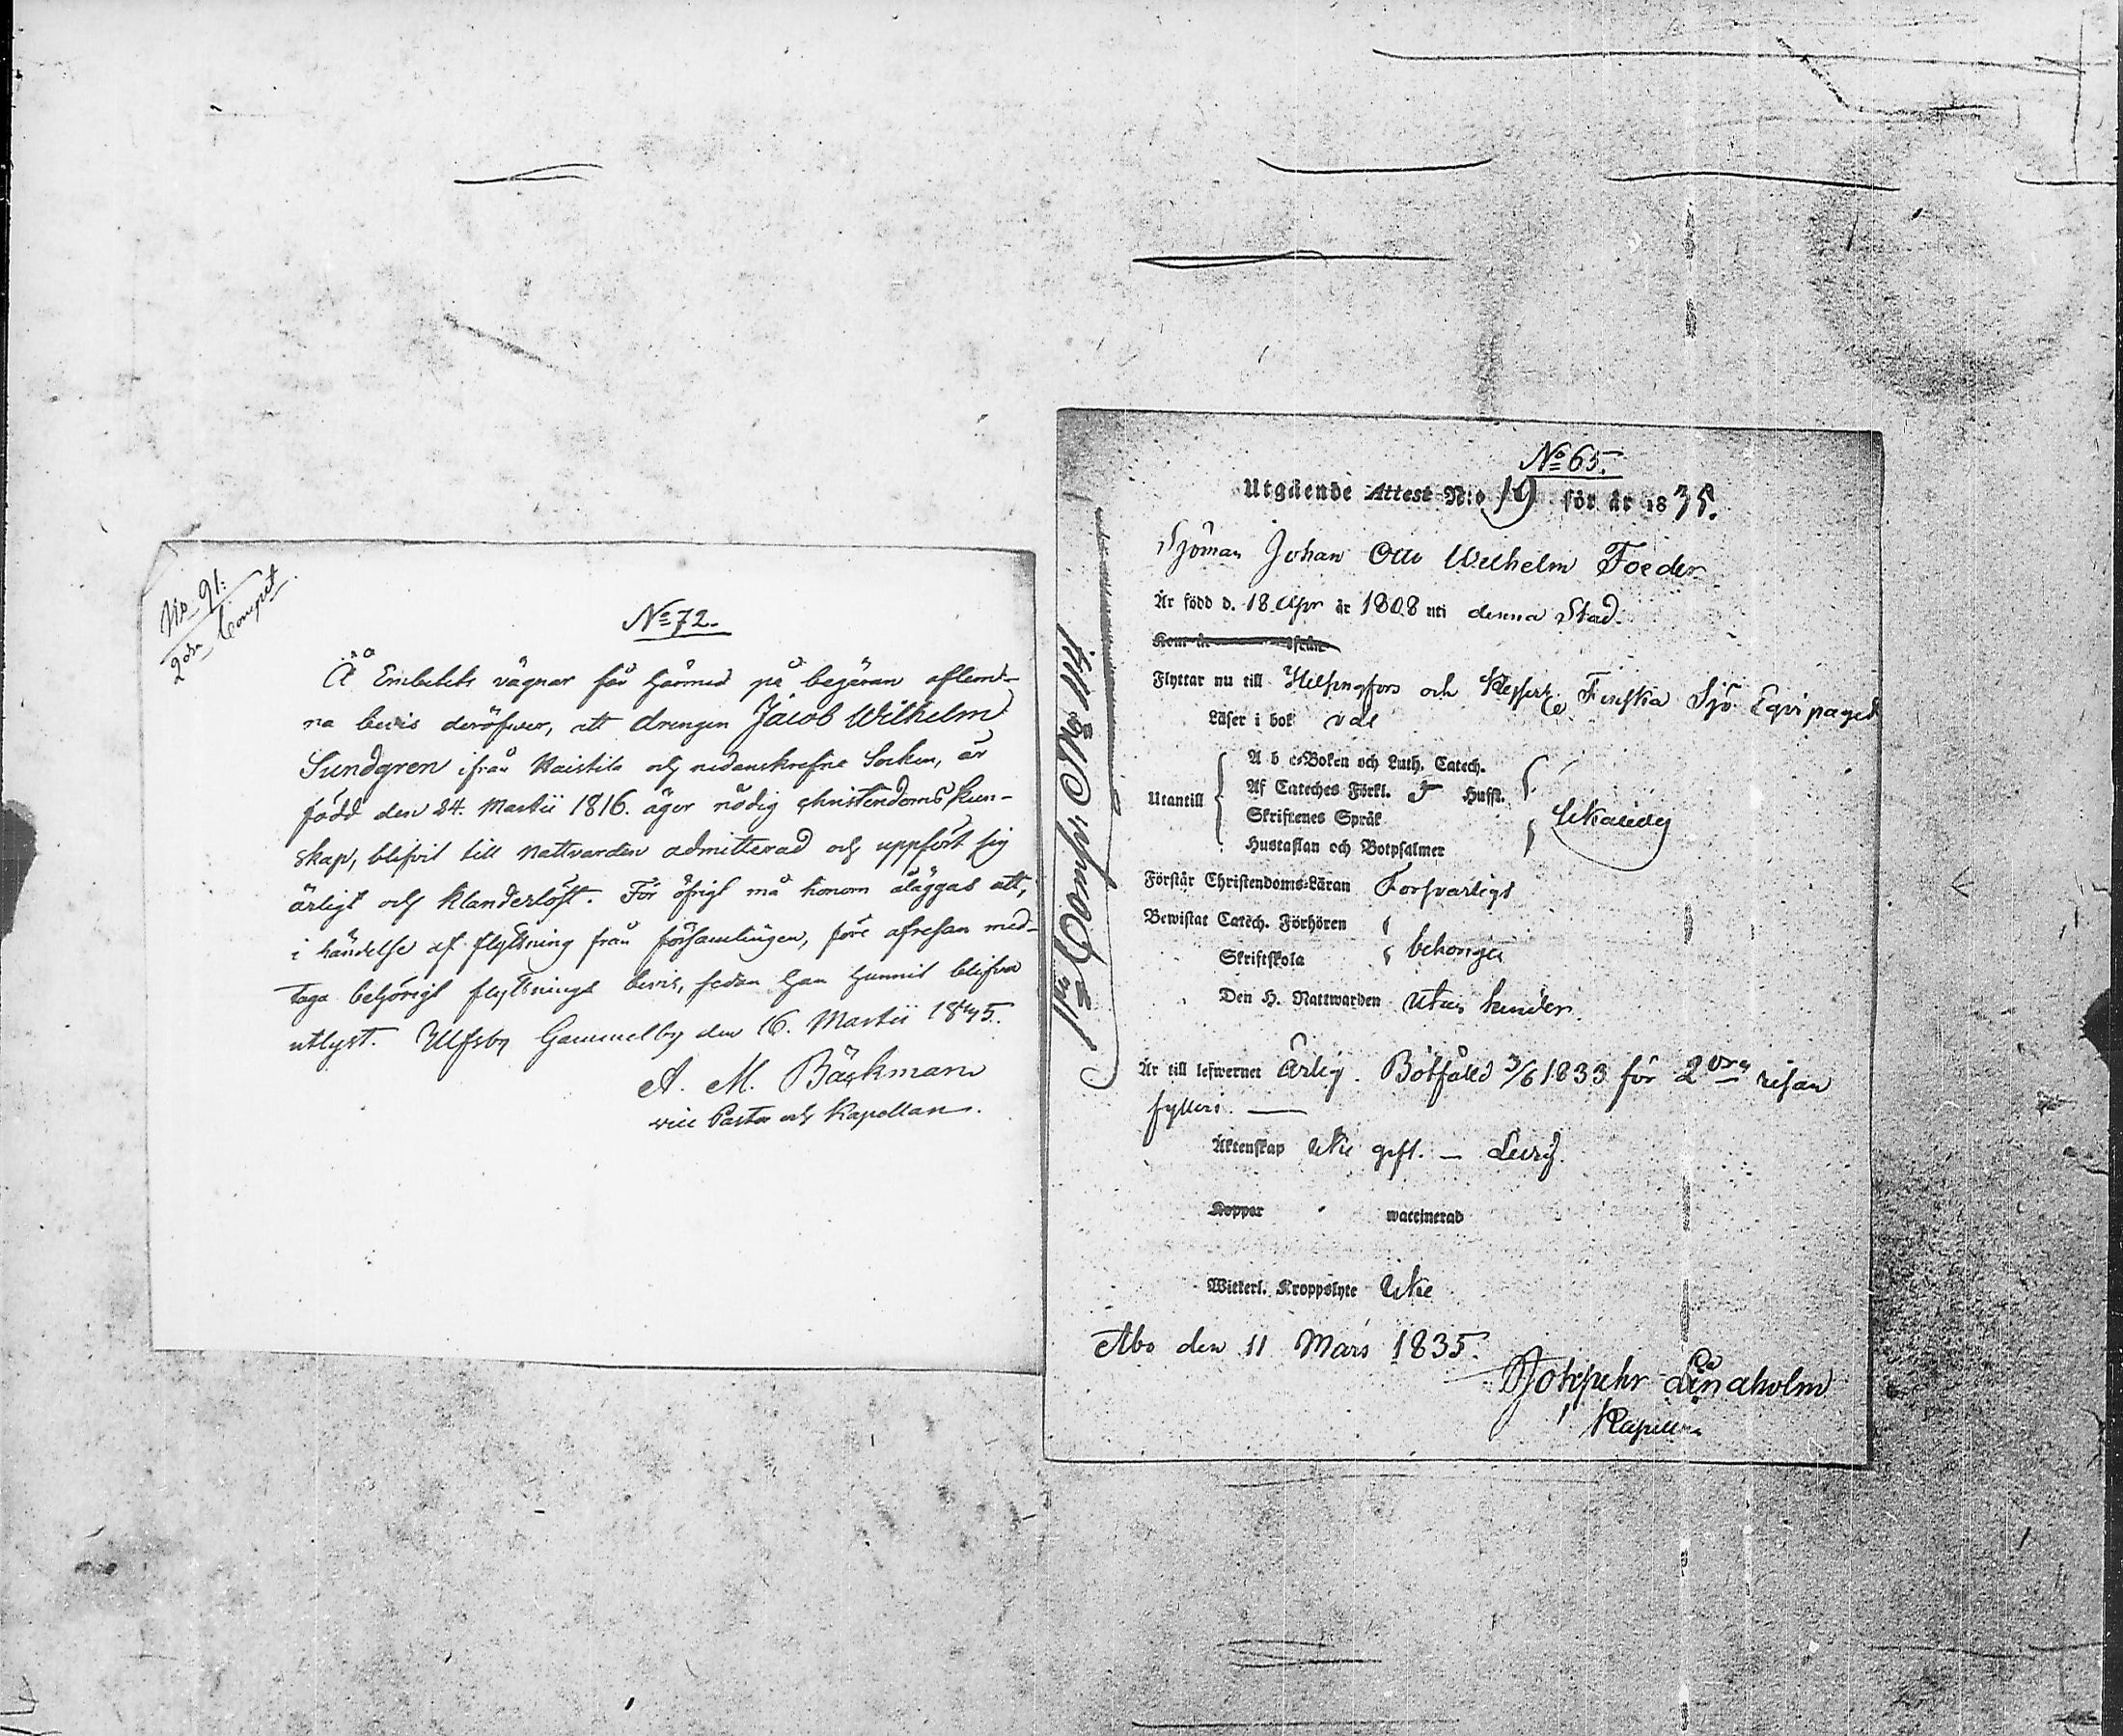 No 91.
2dra Comp:t
No 72.
Å Embetets vägnar får härmed på begäran aflem-
na bevis deröfver, att drengen Jacob Wilhelm
Sundgren ifrån Haistila och nedanskrefne Socken, är
född den 24. Martii 1816. äger nödig christendoms kun-
skap, blifvit till Nattvarden admitterad och uppfört sig
ärligt och klanderlöst. För öfrigt må honom åläggas att,
i händelse af flyttning från församlingen, före afresan med-
taga behörigt flyttnings bevis, sedan han hunnit blifva
utlyst. Ulfsby Gammelby den 16. Martii 1835.
A. M. Bäckman
vice Pastor och Kapellan.
1sta Comp:
No 65.
Utgående Attest N:o 19 för år 1835.
Sjöman Johan Otto Wilhelm Foeder
Är född d. 18 Apr år 1808 uti denna Stad.
Kom år ifrån
Flyttar nu till Helsingfors och Finska Sjö Equipaget
Läser i bok väl
Utantill
A b c-Boken och Luth. Catech.
Af Cateches Förkl. 5 Hufst.
Skriftenes Språk
Hustaflan och Botpsalmer
Förstår Christendoms-Läran Försvarligt
Bewistat Catech. Förhören
Skriftskola
behörigen
Den H. Nattwarden utan hinder.
Är till lefwernet Ärlig. Bötfälld 3/6 1833 för 2dra resan
fylleri.
Äktenskap Icke gift. — Ledig.
Koppor waccinerad
Witterl. Kroppslyte Icke
Åbo den 11 Mars 1835.
Lindholm
Kapellan